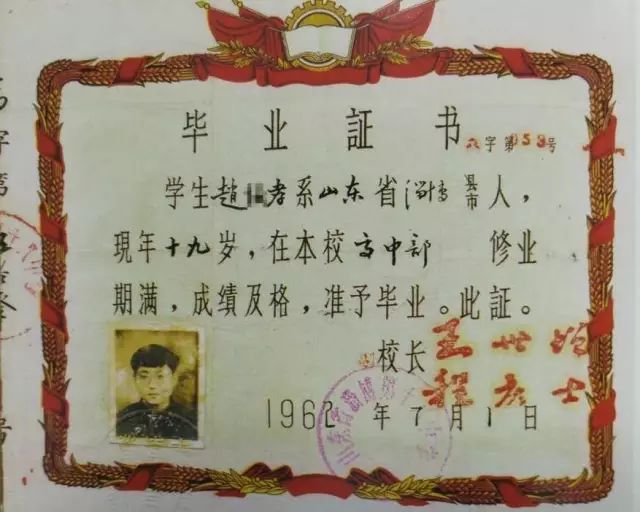 毕业証书
六字第353号
学生趙 孝系山东省淄博县市人，
現年十九岁，在本校高中部 修业
期满，成绩及格，准予毕业。此証。
校长
王世
程彦士
1962年7月1日